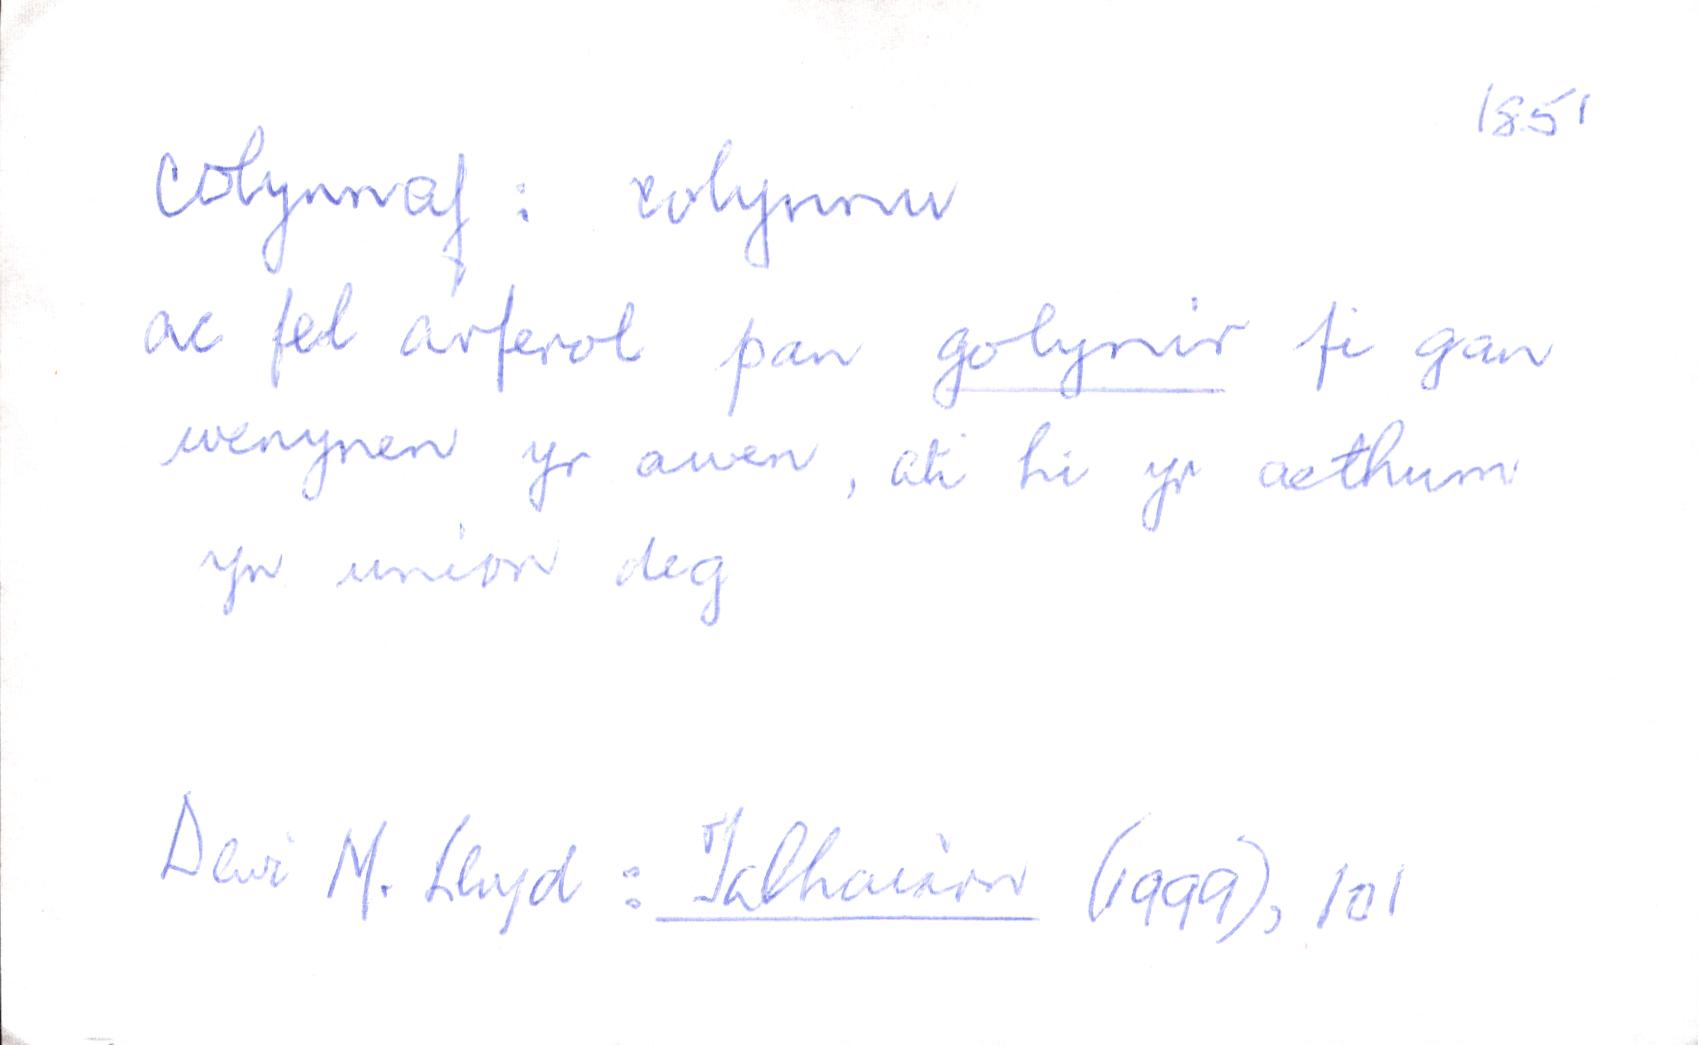 1851
colynnaf: colynnu
ac fel arferol pan golynir fi gan
wenynen yr awen, ati hi yr aethum
yn union deg
Dewi M. Lloyd: Talhaiarn (1999), 101